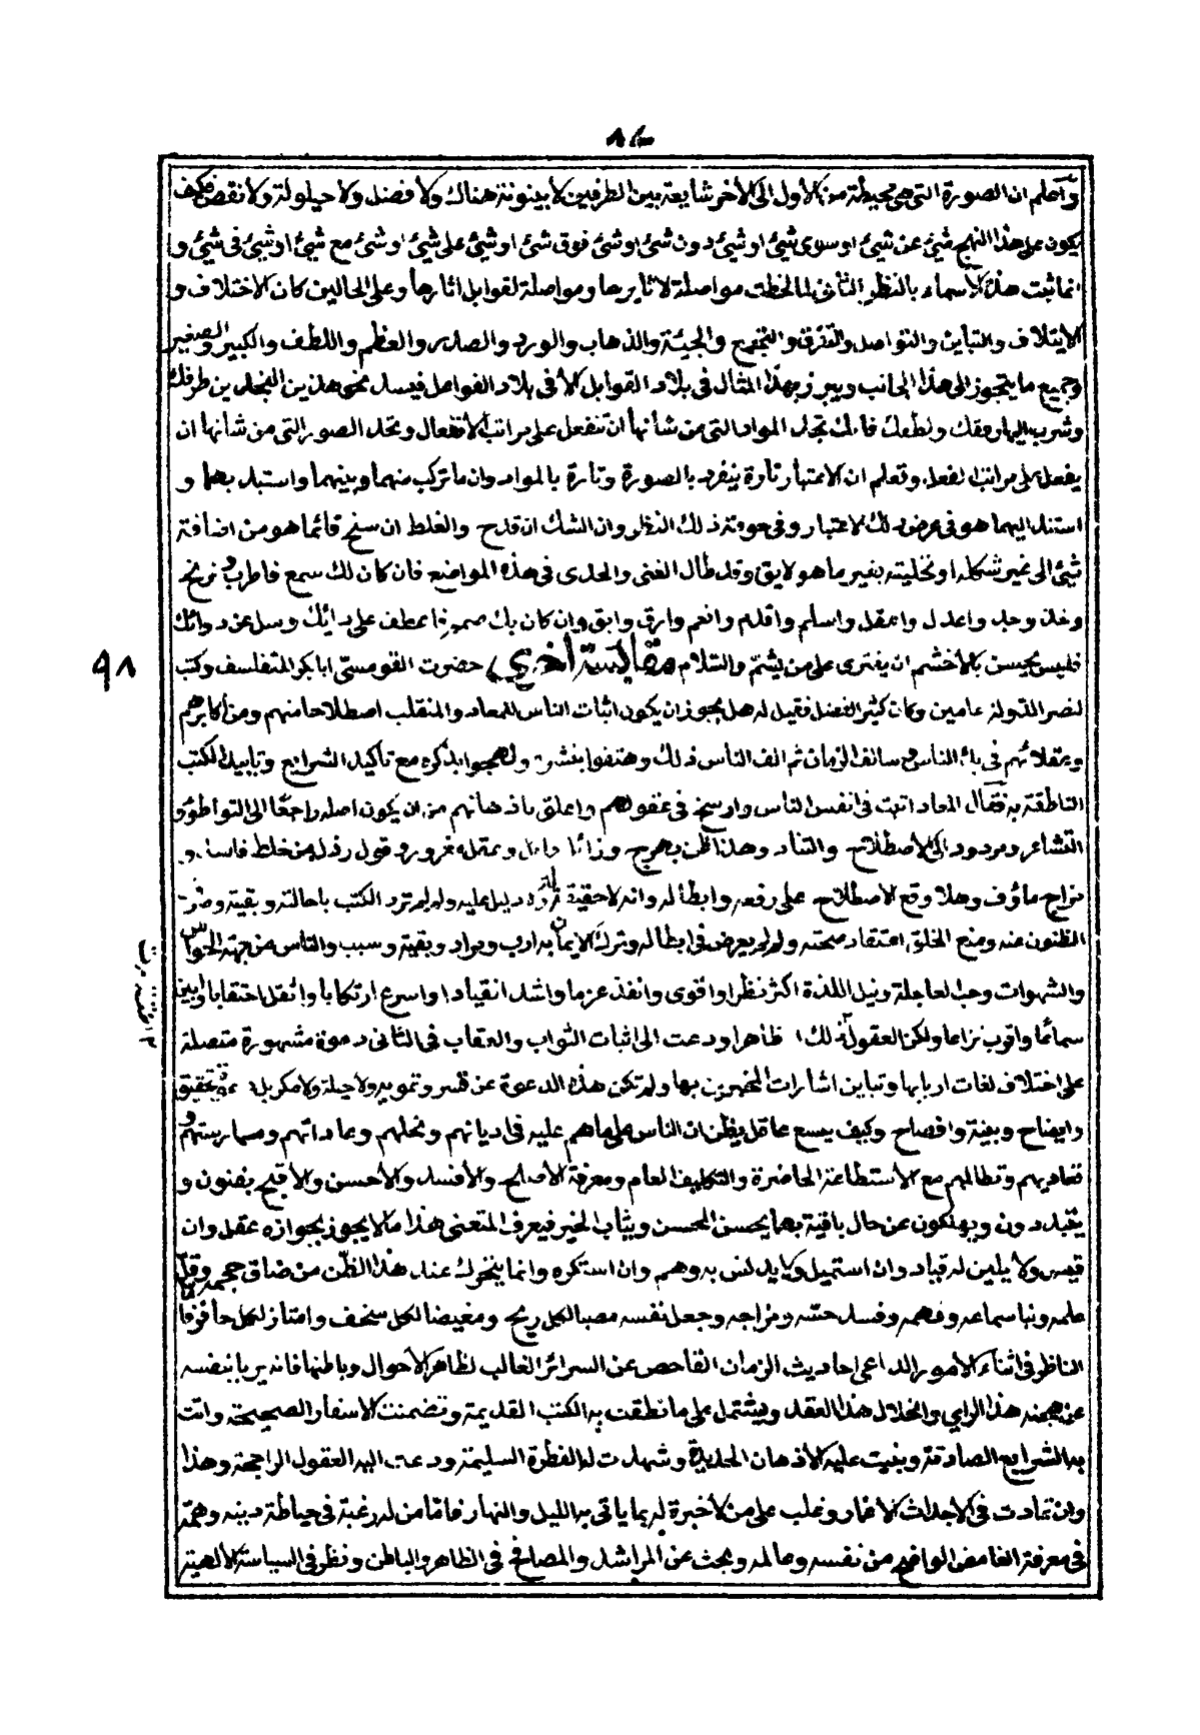 ٨٠
واعلم ان الصورة التى هى محيطة من الاول الى الاخر شايعة بين الطرفين لا بينونة هناك ولا فصل ولا حيلولة ولا نقص فكيف
يكون على هذا النهج شئ عن شئ او سوى شئ او شئ دون شئ او شئ فوق شئ او شئ على شئ او شئ مع شئ او شئ فى شئ و
انما ثبت هذه الاسماء بالنظر الثانى لما لحظت مواصلة لاثايرها ومواصلة القوابل اثارها وعلى الحالين كان الاختلاف و
الايتلاف والتباين والتواصل والتفرق والتجمع والجيئة والذهاب والورد والصدر والعظم واللطف والكبير والصغير
وجميع ما يتجوز الى هذا الجانب ويبرز بهذا المثال فى بلاد القوابل لا فى بلاد الفواعل فيسل نحو هذين النجدين طرفك
وسرب اليها وهمك ولطفك فانك تجد المواد التى من شأنها ان تنفعل على مراتب الانفعال وتجد الصور التى من شانها ان
يفعل على مراتب الفعل وتعلم ان الاعتبار تارة ينفرد بالصورة وتارة بالمواد وان ما تركب منهما وبينهما واستبد بهما و
استند اليهما هو فى عرض ذلك الاعتبار وفى حومة ذلك النظر وان الشك ان قدح والغلط ان سنح فانما هو من اضافة
شئ الى غير شكله او تحليته بغير ما هو لايق وقد طال الفنى والحدى فى هذه المواضع فان كان لك سمع فاطرب وترنح
وخذ وجد واعدل واعقل واسلم واقدم وانعم وارق وابق وان كان بك صمم فاعطف على دائك وسل عن دوائك
فليس يحسن بالاخشم ان يفترى على من يشم والسلام مقابسة اخرى حضرت القومسى ابا بكر المتفلسف وكتب
٩٨
لنصر الدولة عامين وكان كثير الفضل فقيل له هل يجوز ان يكون اثبات الناس للمعاد والمنقلب اصطلاحا منهم ومن اكابرهم
وعقلائهم فى بدء الناس وسالف الزمان ثم الف الناس ذلك وهتفوا بنشره ولهجوا بذكره مع تاكيد الشرايع وتاييد الكتب
الناطقة به فقال المعاد اثبت فى انفس الناس وارسخ فى عقولهم واعلق باذهانهم من ان يكون اصله راجعا الى التواطؤ و
التشاعر ومردود الى الاصطلاح والتناد وهذا ظن بهرج وزائد باطل وعقل مغرور وقول رذل من خلط فاسد و
مزاج ماؤف وهلا وقع الاصطلاح على رفعه وابطاله وانه لا حقيقة له ولا دليل عليه ولم لم ترد الكتب باحالته وبقيته وصرف
الظنون عنه ومنع الخلق اعتقاد صحته ولم لم يعرض فى ابطاله وترك الايمان به ارب ومراد وبقية وسبب والناس من جهة الحواس
والشهوات وحب العاجلة ونيل اللذة اكثر نظرا واقوى وانفذ عزما واشد انقيادا واسرع ارتكابا واثقل احتقابا وابين
سمائما واقوب نزاعا ولكن العقول لذلك ظاهرا ودعت الى اثبات الثواب والعقاب فى الثانى دعوة مشهورة متصلة
على اختلاف لغات اربابها وتباين اشارات المخبرين بها ولم تكن هذه الدعوة عن قسر وتمويه ولا حيلة ولا مكر بل بتحقيق
وايضاح وبينة وافصاح وكيف يسع عاقل يظن ان الناس على ما هم عليه فى ديانهم ونحلهم وعاداتهم وممارستهم و
تعاديهم وتطالبهم مع الاستطاعة الحاضرة والتكليف العام ومعرفة الاصلح والافسد والاحسن والاقبح يفنون و
يتبددون ويهلكون عن حال باقية بها يحسن المحسن ويثاب الخير فيعرف المتعنى هذا مالا يجوز بجوازه عقل وان
قيس ولا يلين له قياد وان استميل ولا يدلس به وهم وان استكره وانما يتحرك عند هذا الظن من ضاق حجمه وقل
علمه ونبا سماعه وفهمه وفسد حسه ومزاجه وجعل نفسه مصبا لكل ريح ومغيضا لكل سخف وامتاز لكل حافز فاما
الناظر فى اثناء الامور الداعى احاديث الزمان الفاحص عن السرائر الغالب لظاهر الاحوال وباطنها فانه يربا بنفسه
عن هجنة هذا الراى وانحلال هذا العقد ويشتمل على ما نطقت به الكتب القديمة وتضمنت الاسفار الصحيحة واتت
به الشرايع الصادقة وبنيت عليه الاذهان الحديدة وشهدت له الفطرة السليمة ودعت اليه العقول الراجحة وهذا
وان تمادت فى الاجداث الاعمار وغلب على من لا خبرة له بما ياتى به الليل والنهار فاما من له رغبة فى حياطة دينه وهمة
فى معرفة الغامض الواضح من نفسه وعالمه وبحث عن المراشد والمصالح فى الظاهر والباطن ونظر فى السياسة الالهية